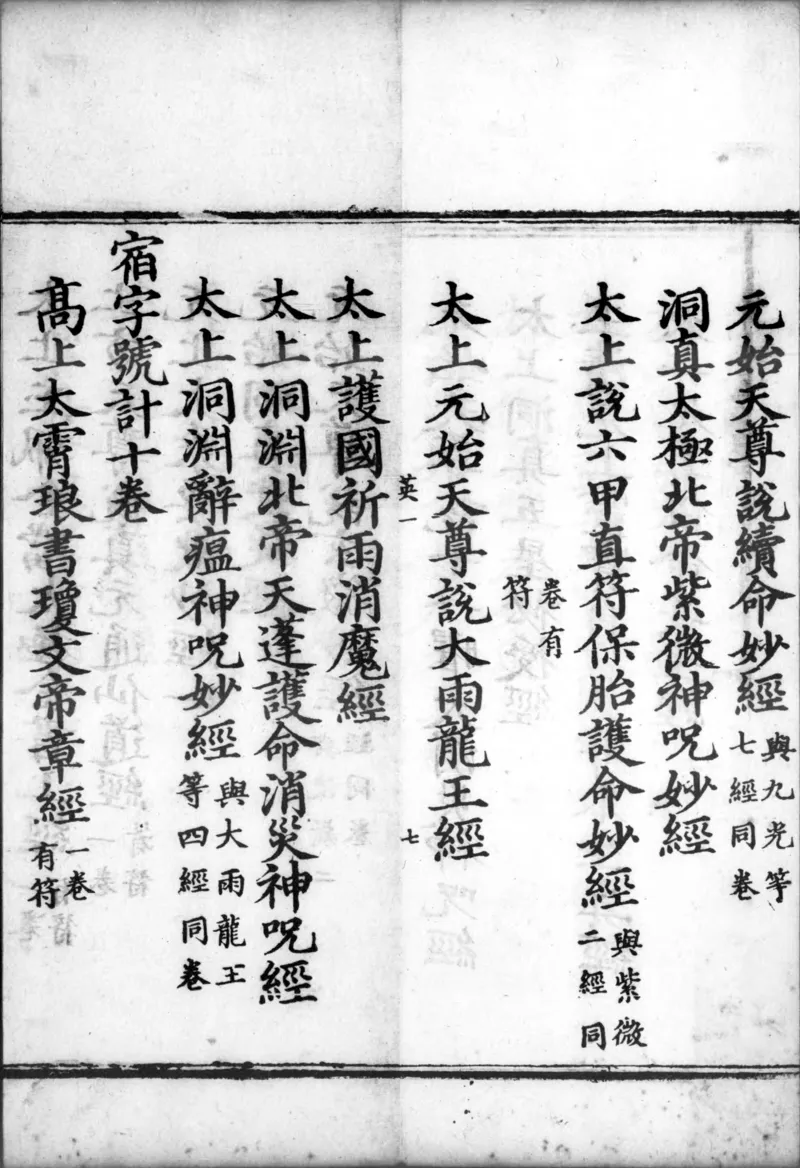 元始天尊說續命妙經與九光等七經同卷
洞真太極北帝紫微神呪妙經
太上說六甲直符保胎護命妙經與紫微二經同
卷有符
太上元始天尊說大雨龍王經
英一 七
太上護國祈雨消魔經
太上洞淵北帝天蓬護命消災神呪經
太上洞淵辭瘟神呪妙經與大雨龍王等四經同卷
宿字號計十卷
高上太霄琅書瓊文帝章經一卷有符